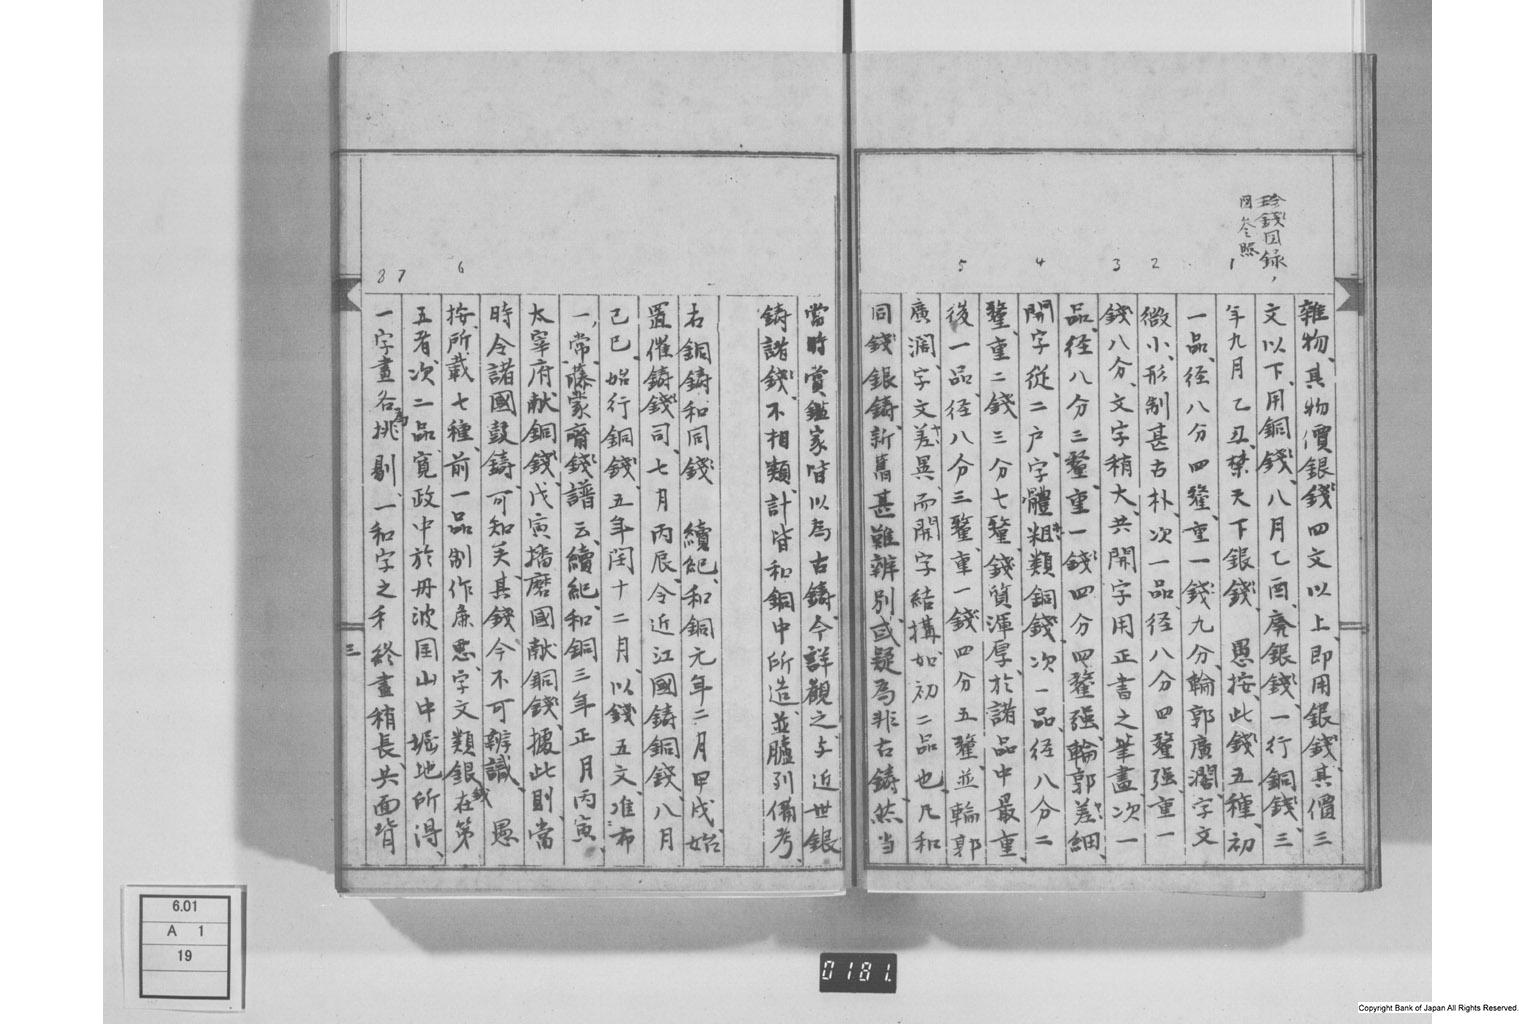 珍錢目録、
図参照
1
2
3
4
5
雜物、其物價銀錢四文以上、即用銀錢、其價三
文以下、用銅錢、八月乙酉、廃銀錢、一行銅錢、三
年九月乙丑、禁天下銀錢、愚按、此錢五種、初
一品、径八分四釐、重一錢九分、輪郭廣濶、字文
微小、形制甚古朴、次一品、径八分四釐强、重一
錢八分、文字稍大、共開字用正書之筆畫、次一
品、径八分三釐、重一錢四分四釐强、輪郭差細、
開字從二户、字體粗類銅錢、次一品、径八分二
釐、重二錢三分七釐、錢質渾厚、於諸品中最重、
後一品、径八分三釐、重一錢四分五釐、並輪郭
廣濶、字文差異、而開字結構、如初二品也、凡和
同錢銀鋳、新舊甚難辨別、或疑為非古鋳、然当
當時賞鑑家皆以為古鋳、今詳觀之、与近世銀
鋳諸錢、不相類、計皆和銅中所造、並臚列備考、
右銅鋳和同錢　續紀、和銅元年二月甲戌、始
置催鋳錢司、七月丙辰、令近江國鋳銅錢、八月
己巳、始行銅錢、五年閏十二月、以錢五文、准布
一、常、藤蒙齋錢譜云、續紀、和銅三年正月丙寅、
太宰府献銅錢、戊寅、播磨國献銅錢、據此則、當
時令諸國鼓鋳、可知矣、其錢今不可辨識、愚
按、所載七種、前一品制作麁悪、字文類銀錢在第
五者、次二品、寛政中於丹波国山中堀地所得、
一字畫各為挑剔、一和字之禾終畫稍長、共面背
6
7
8
三
6.01
A 1
19
0181.
Copyright Bank of Japan All Rights Reserved.